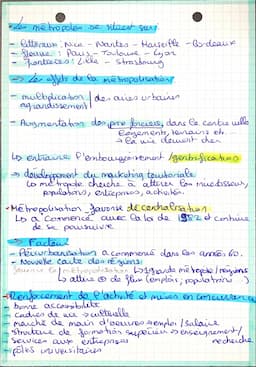 → Les métropoles se situent sur:
- Littoraux: Nice - Nantes - Marseille - Bordeaux
- Fleuve: Paris - Toulouse - Lyon
- Frontières: Lille - Strasbourg
→ Les effets de la métropolisation
- multiplication / des aires urbaines
agrandissement
- Augmentation des prix fonciers, dans le centre ville
logements, terrains etc...
→ la vie devient cher
↳ entraine l'embourgeoisement / gentrification
→ développement du marketing territoriale
↳ métropole cherche à attirer les investisseurs,
populations, entreprises, activités.
- Métropolisation favorise decentralisation
↳ a commencé avec la loi de 1982 et continue
de se poursuivre
→ Facteur
- Périurbanisation a commencé dans les années 60.
- Nouvelle carte des régions:
↳ grande métropole/régions
↳ attire de flux (emploi, populations)
Renforcement de l'activité et mises en concurrence
- bonne accessibilité
- cadres de vie culturelle
- marché de main d'oeuvre → emploi / salaire
- structure de formation supérieure → enseignement/
recherche
- services aux entreprises
- pôles universitaires